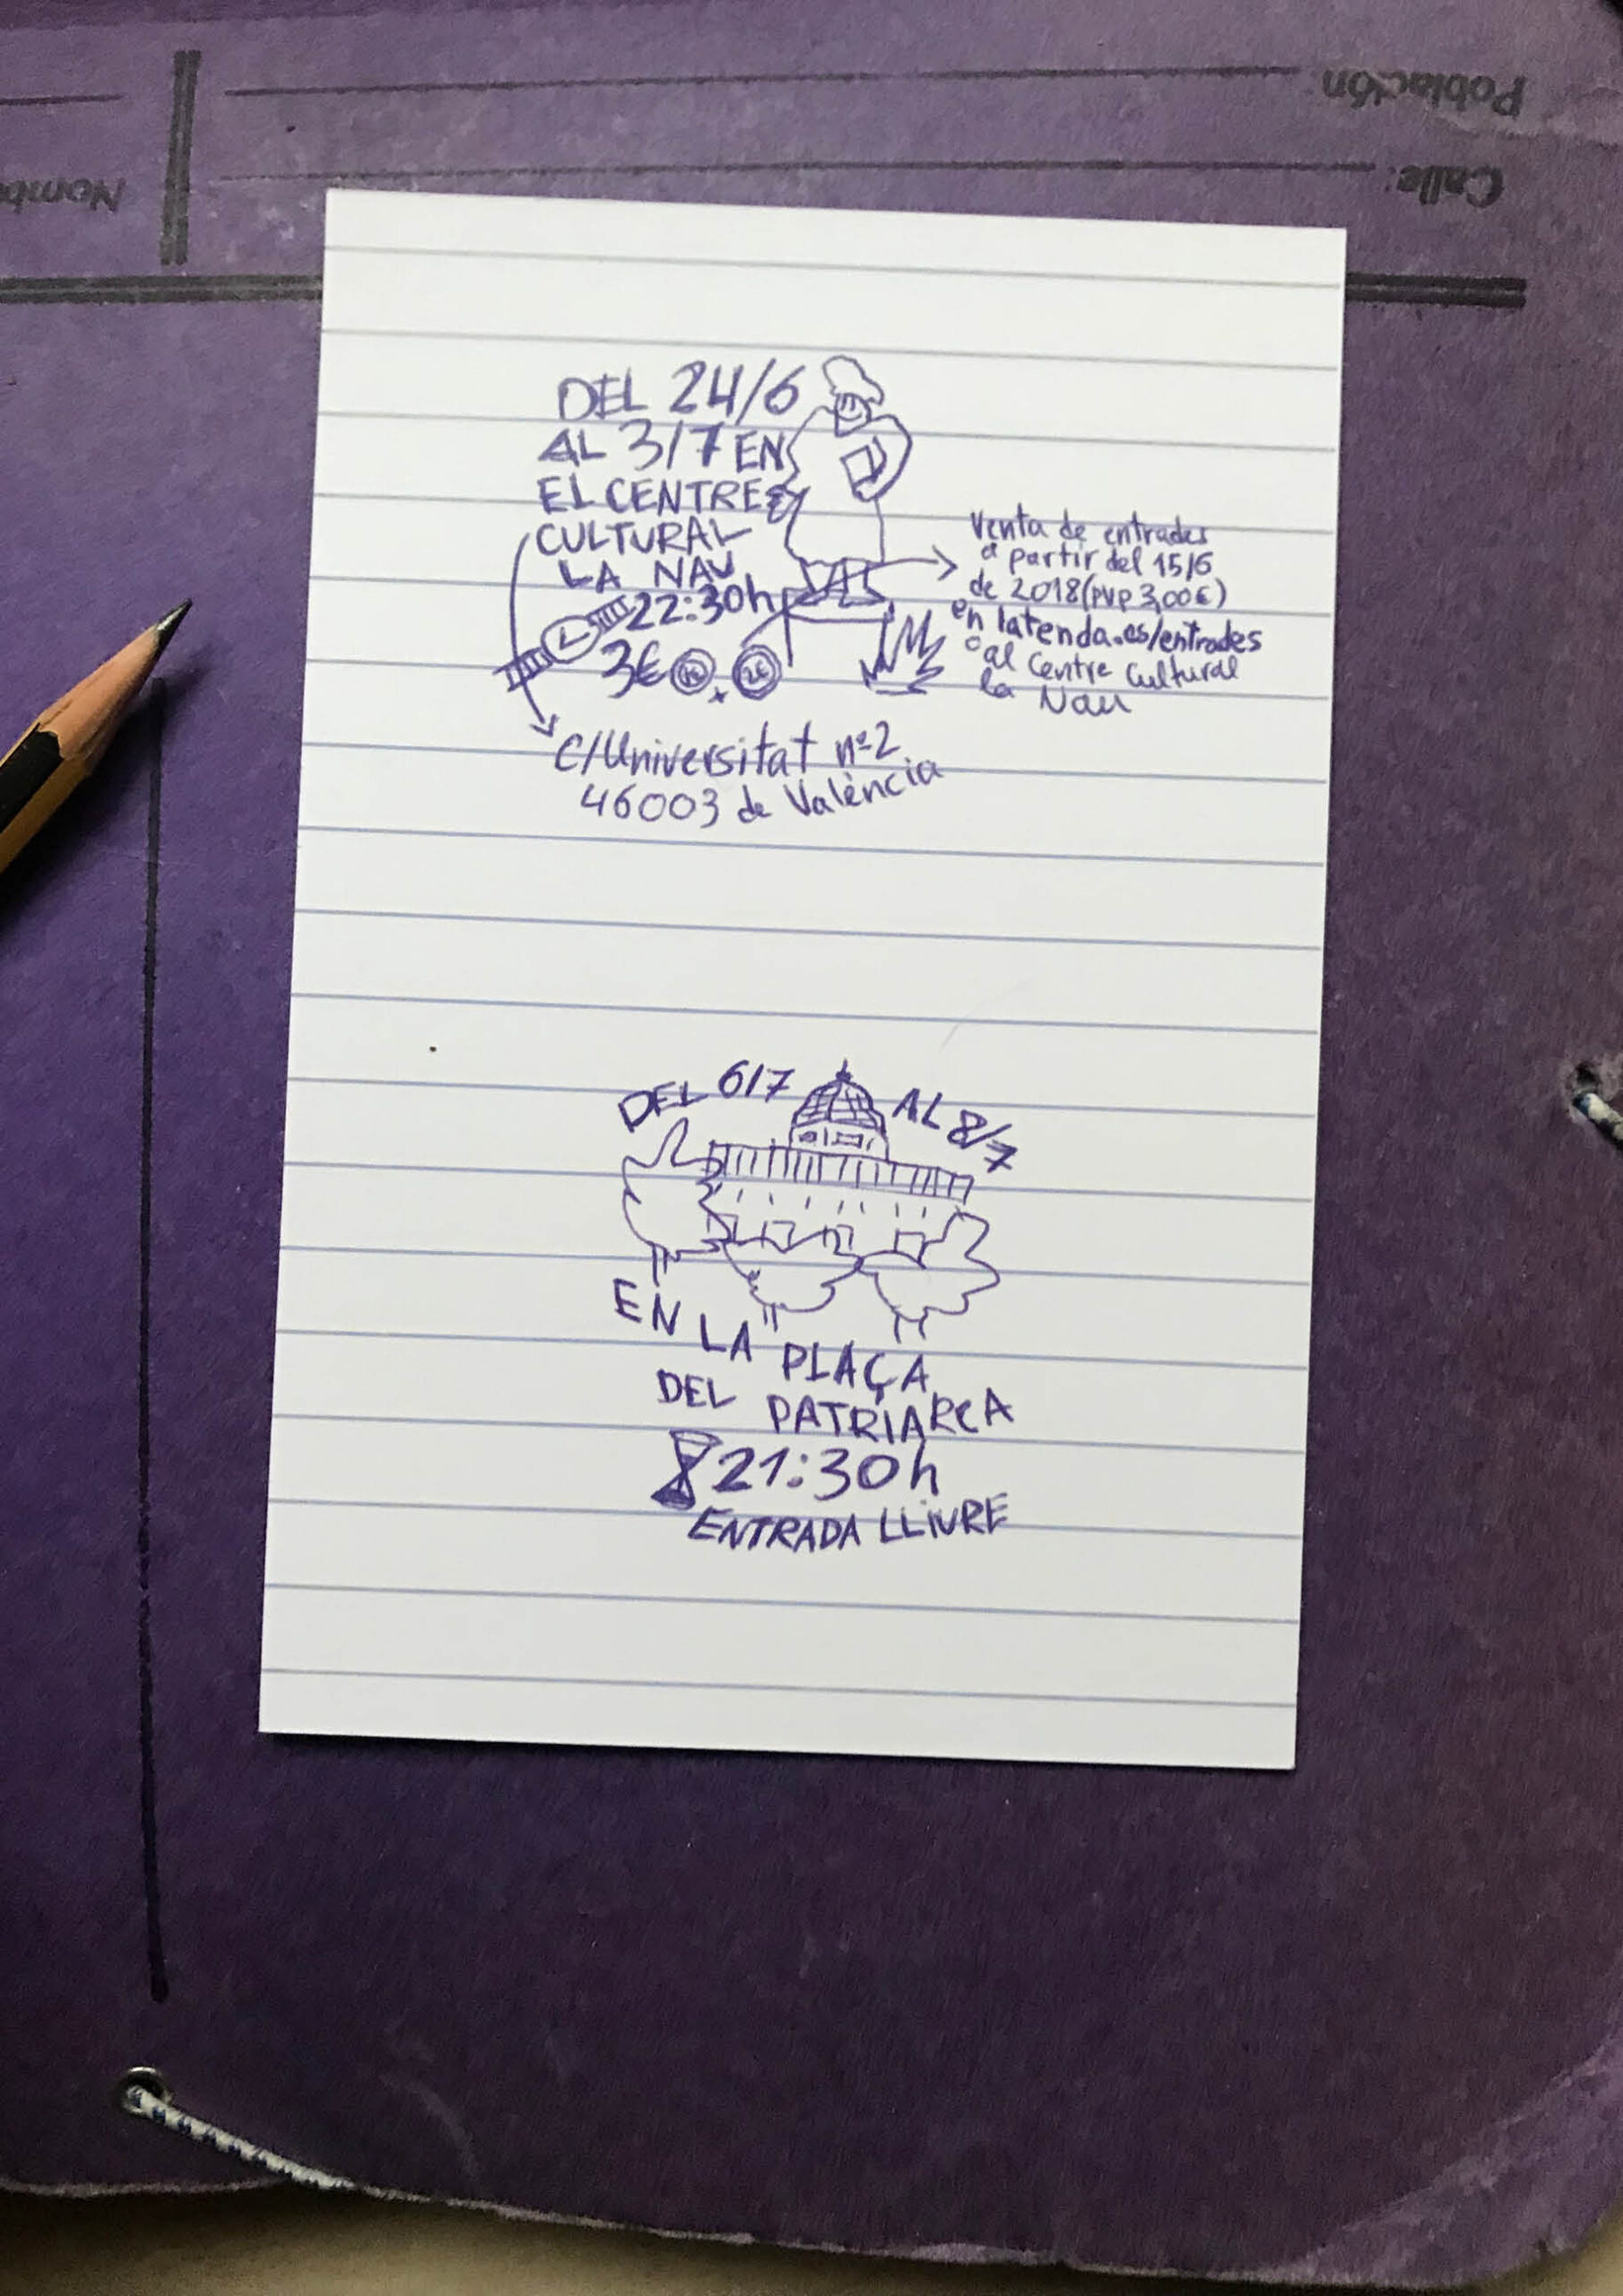 Población:
Calle:
Nomb
DEL 24/6
AL 3/7 EN
EL CENTRE
CULTURAL
LA NAU
22:30h
3€ 1€ + 2€
Venta de entrades
a partir del 15/6
de 2018 (PVP 3,00€)
en latenda.es/entrades
o al Centre Cultural
la Nau
C/Universitat nº2
46003 de València
DEL 6/7 AL 8/7
EN LA PLAÇA
DEL PATRIARCA
21:30h
ENTRADA LLIURE